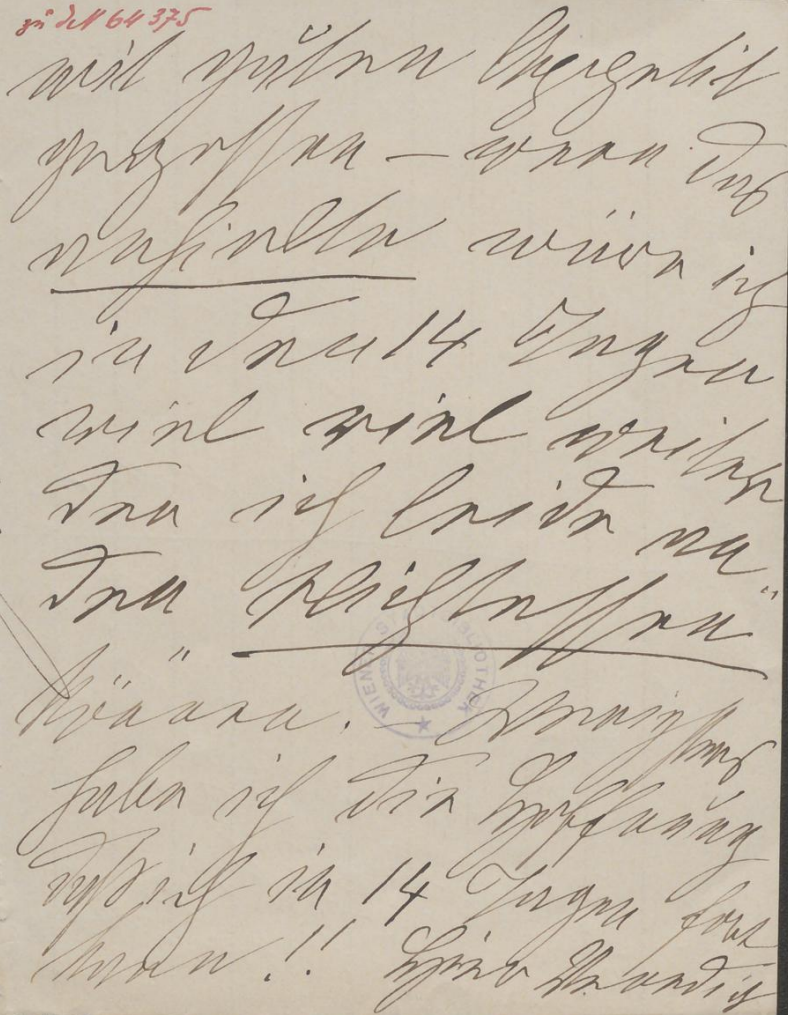 zu I.N 64375
mit guten Appetit
gegessen — wenn das
anhielte wäre ich
in den 14 Tagen
viel viel weiter
den ich leide an
den Nichtessen
können. — Wenigstens
habe ich die Hoffnung
daß ich in 14 Tagen fort
kann!! Hier
WIENER STADTBIBLIOTHEK